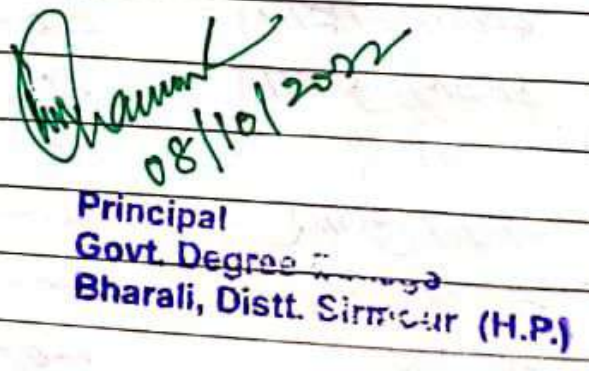 08/10/2022
Principal
Govt. Degree College
Bharali, Distt. Sirmour (H.P.)